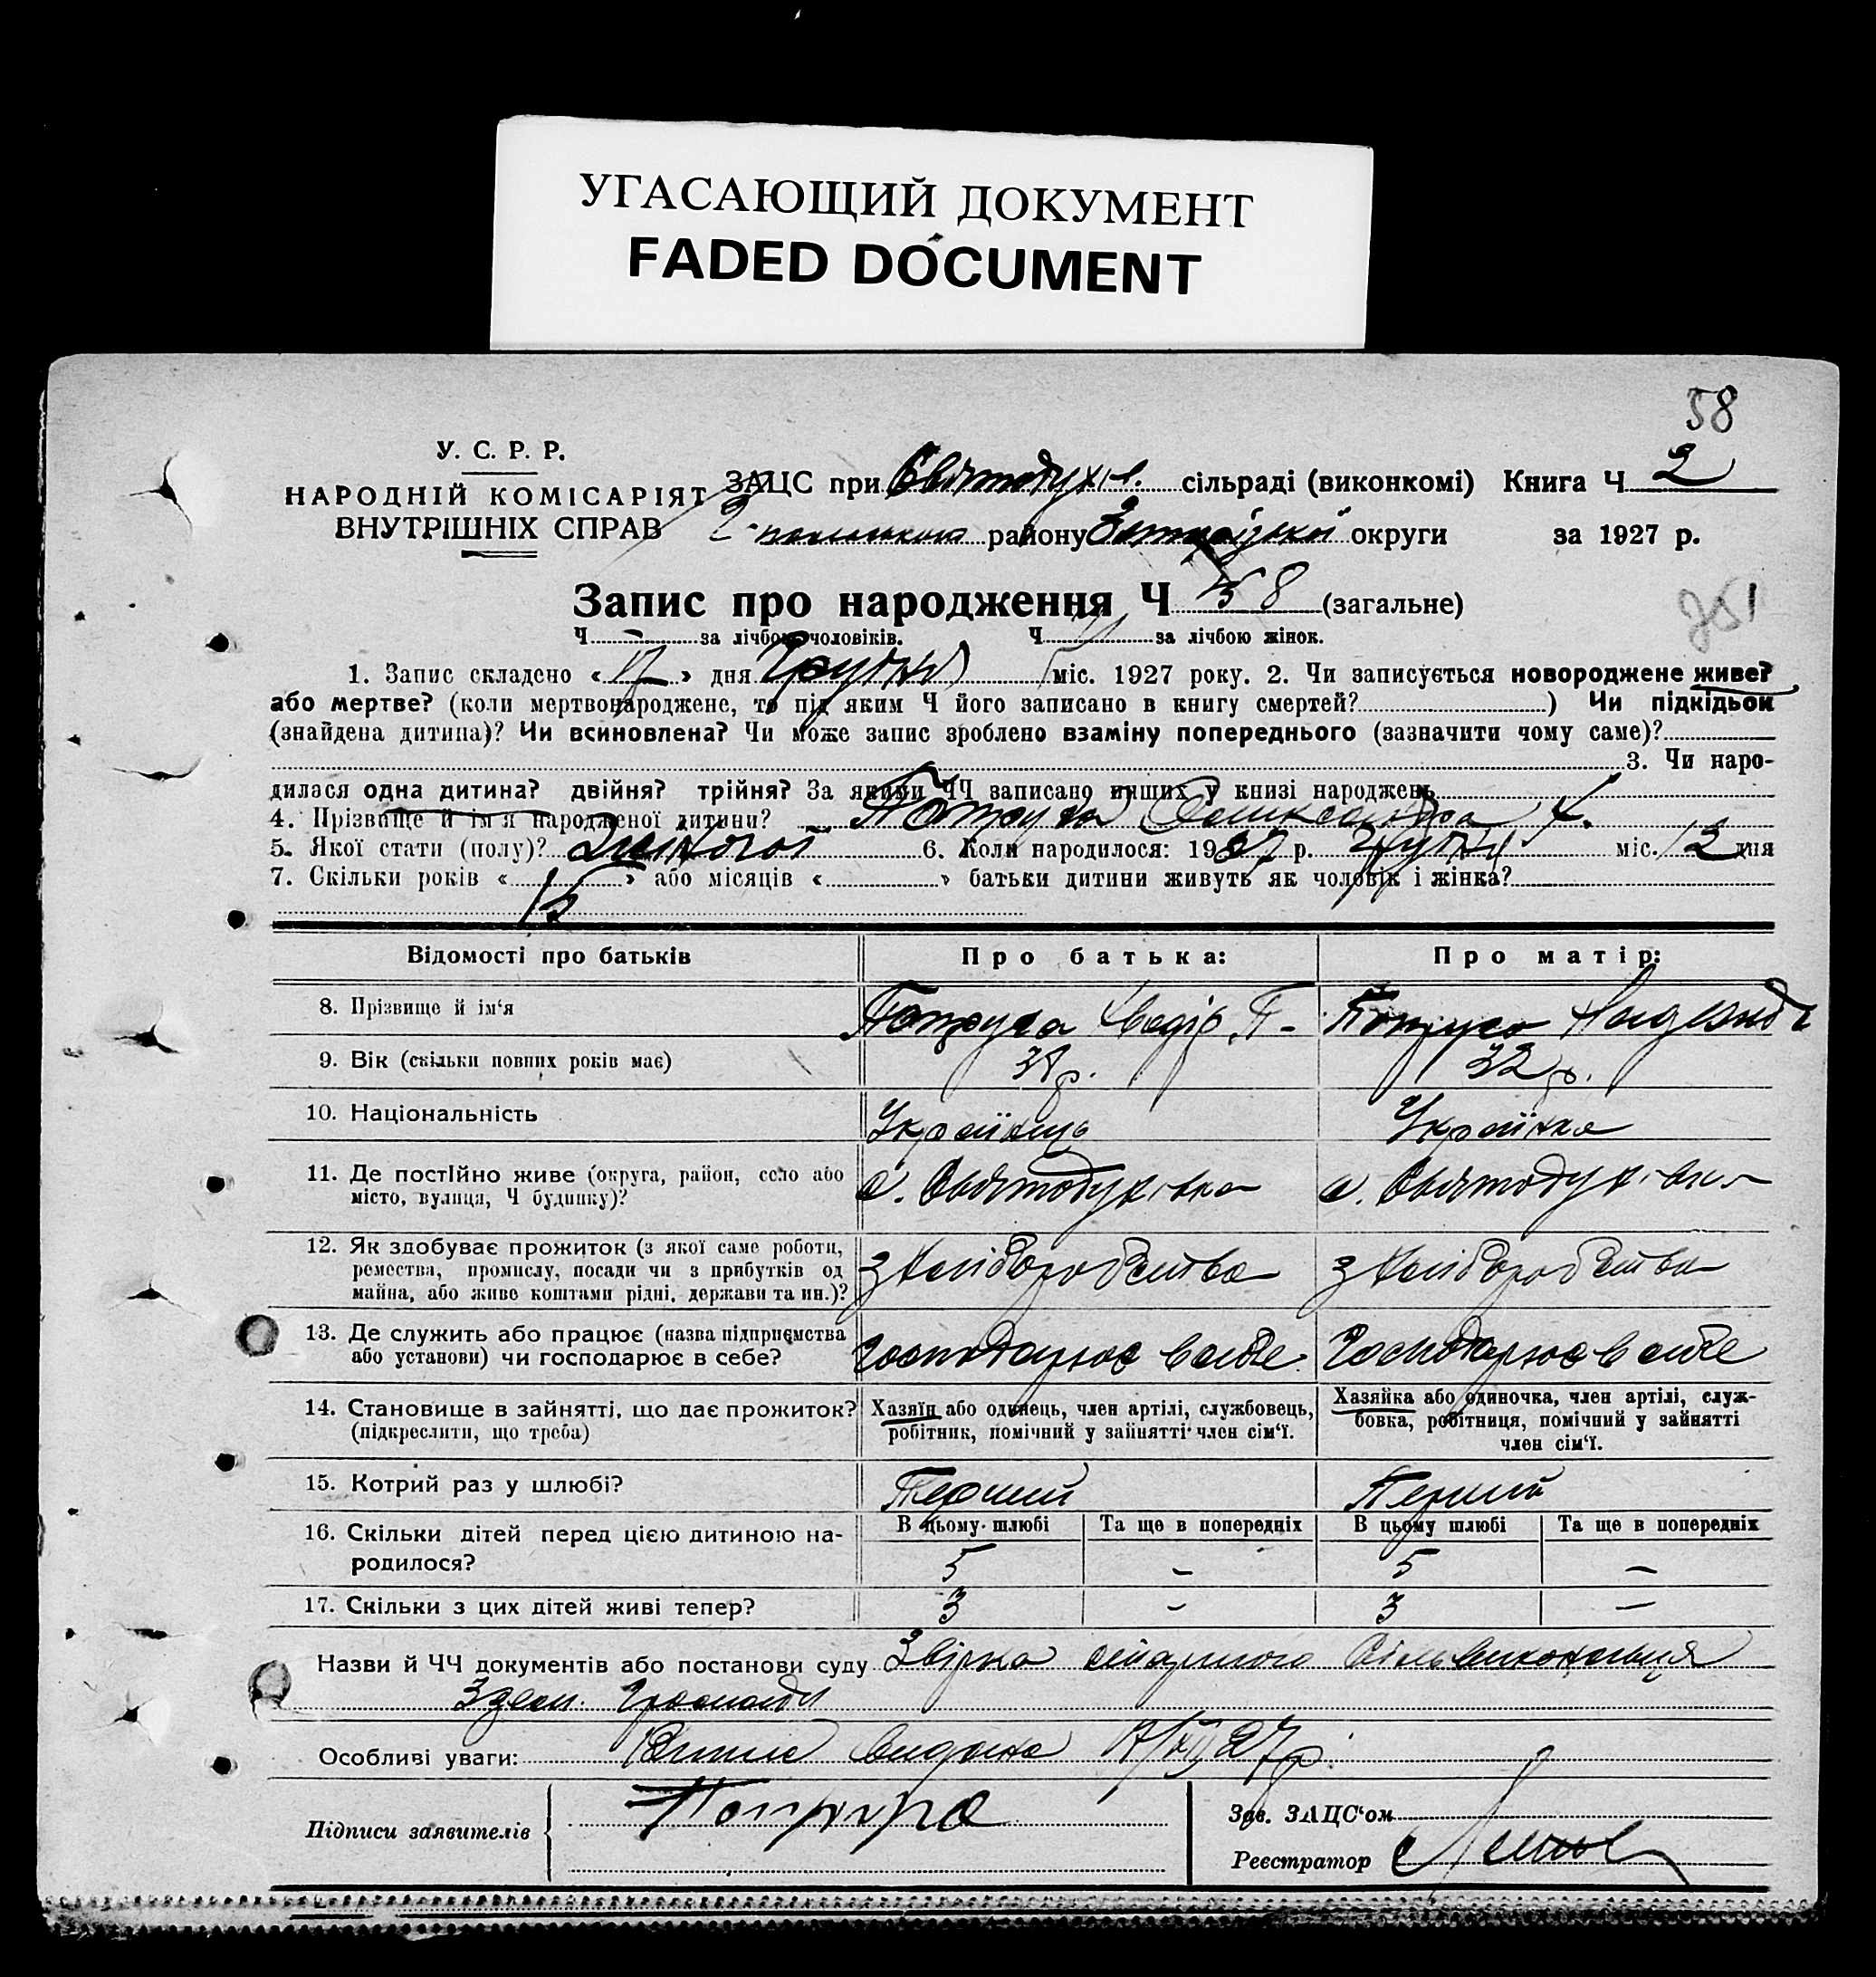 УГАСАЮЩИЙ ДОКУМЕНТ
FADED DOCUMENT
58
У. С. Р. Р.
НАРОДНІЙ КОМІСАРІЯТ
ВНУТРІШНІХ СПРАВ
ЗАЦС при Святодухів. сільраді (виконкомі) Книга Ч 2
району округи за 1927 р.
Запис про народження Ч 58 (загальне)
351
Ч - за лічбою чоловіків. Ч за лічбою жінок.
1. Запис складено « 17 » дня Грудня міс. 1927 року. 2. Чи записується новороджене живе?
або мертве? (коли мертвонароджене, то під яким Ч його записано в книгу смертей? ) Чи підкідьок
(знайдена дитина)? Чи всиновлена? Чи може запис зроблено взаміну попереднього (зазначити чому саме)?
3. Чи наро-
дилася одна дитина? двійня? трійня? За якими ЧЧ записано инших у книзі народжень
4. Прізвище й ім'я народженої дитини? Попруга Олександра Х.
5. Якої стати (полу)? Жіночої 6. Коли народилося: 1927 р. Грудня міс. 12 дня
7. Скільки років « 15 » або місяців « » батьки дитини живуть як чоловік і жінка?
Відомості про батьків Про батька: Про матір:
8. Прізвище й ім'я Попруга Хведір П- Попруга Надежда
9. Вік (скільки повних років має) 38 р. 32 р.
10. Національність Українець Українка
11. Де постійно живе (округа, район, село або с. Святодухівка с. Святодухівка
місто, вулиця, Ч будинку)?
12. Як здобуває прожиток (з якої саме роботи, з хліборобства з хліборобства
ремества, промислу, посади чи з прибутків од
майна, або живе коштами рідні, держави та ин.)?
13. Де служить або працює (назва підприємства Господарює в себе Господарює в себе
або установи) чи господарює в себе?
14. Становище в зайнятті, що дає прожиток? Хазяїн або одинець, член артілі, службовець, Хазяйка або одиночка, член артілі, служ-
(підкреслити, що треба) робітник, помічний у зайнятті член сім'ї. бовка, робітниця, помічний у зайнятті
член сім'ї.
15. Котрий раз у шлюбі? Перший Перший
16. Скільки дітей перед цією дитиною на- В цьому шлюбі Та ще в попередніх В цьому шлюбі Та ще в попередніх
родилося? 5 - 5 -
17. Скільки з цих дітей живі тепер? 3 - 3 -
Назви й ЧЧ документів або постанови суду
Особливі уваги: видана 17/XII 27 р.
Підписи заявителів Попруга
Зав. ЗАЦС'ом
Реєстратор